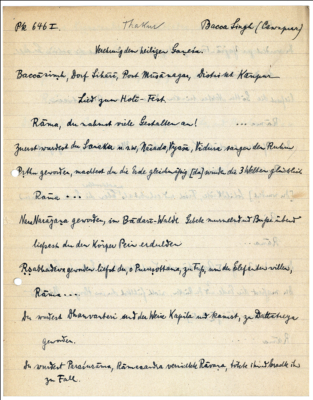 PK 646 I. Thakur Bacca Singh (Cawnpur)
Verehrung dem heiligen Ganeśa.
Baccāsingh, Dorf Sihārī, Post Musānagar, District Kānpur
Lied zum Holī-Fest.
Rāma, du nahmst viele Gestalten an! ...
Zuerst wurdest du Sanaka u.s.w., Nārada, Vyāsa, sangen den Ruhm
geworden, machtest du die Erde gleichmäßig [da] wurden die 3 Welten glücklich
Rāma ...
Nara Nārāyaṇa geworden, im Badarī-Walde Gebete murmelnd und Buße übend
ließest du den Körper Pein erdulden
Ṛṣabhadeva geworden liefst du, o Puruṣottama, zu Fuß, um des Elefanten willen,
Rāma ...
Du wurdest Dhanvantari und der Weise Kapila und kamst, zu Dattātreya
geworden.
Du wurdest Paraśurāma, Rāmacandra vernichtete Rāvaṇa, tötete ihn und brachte ihn
zu Fall.